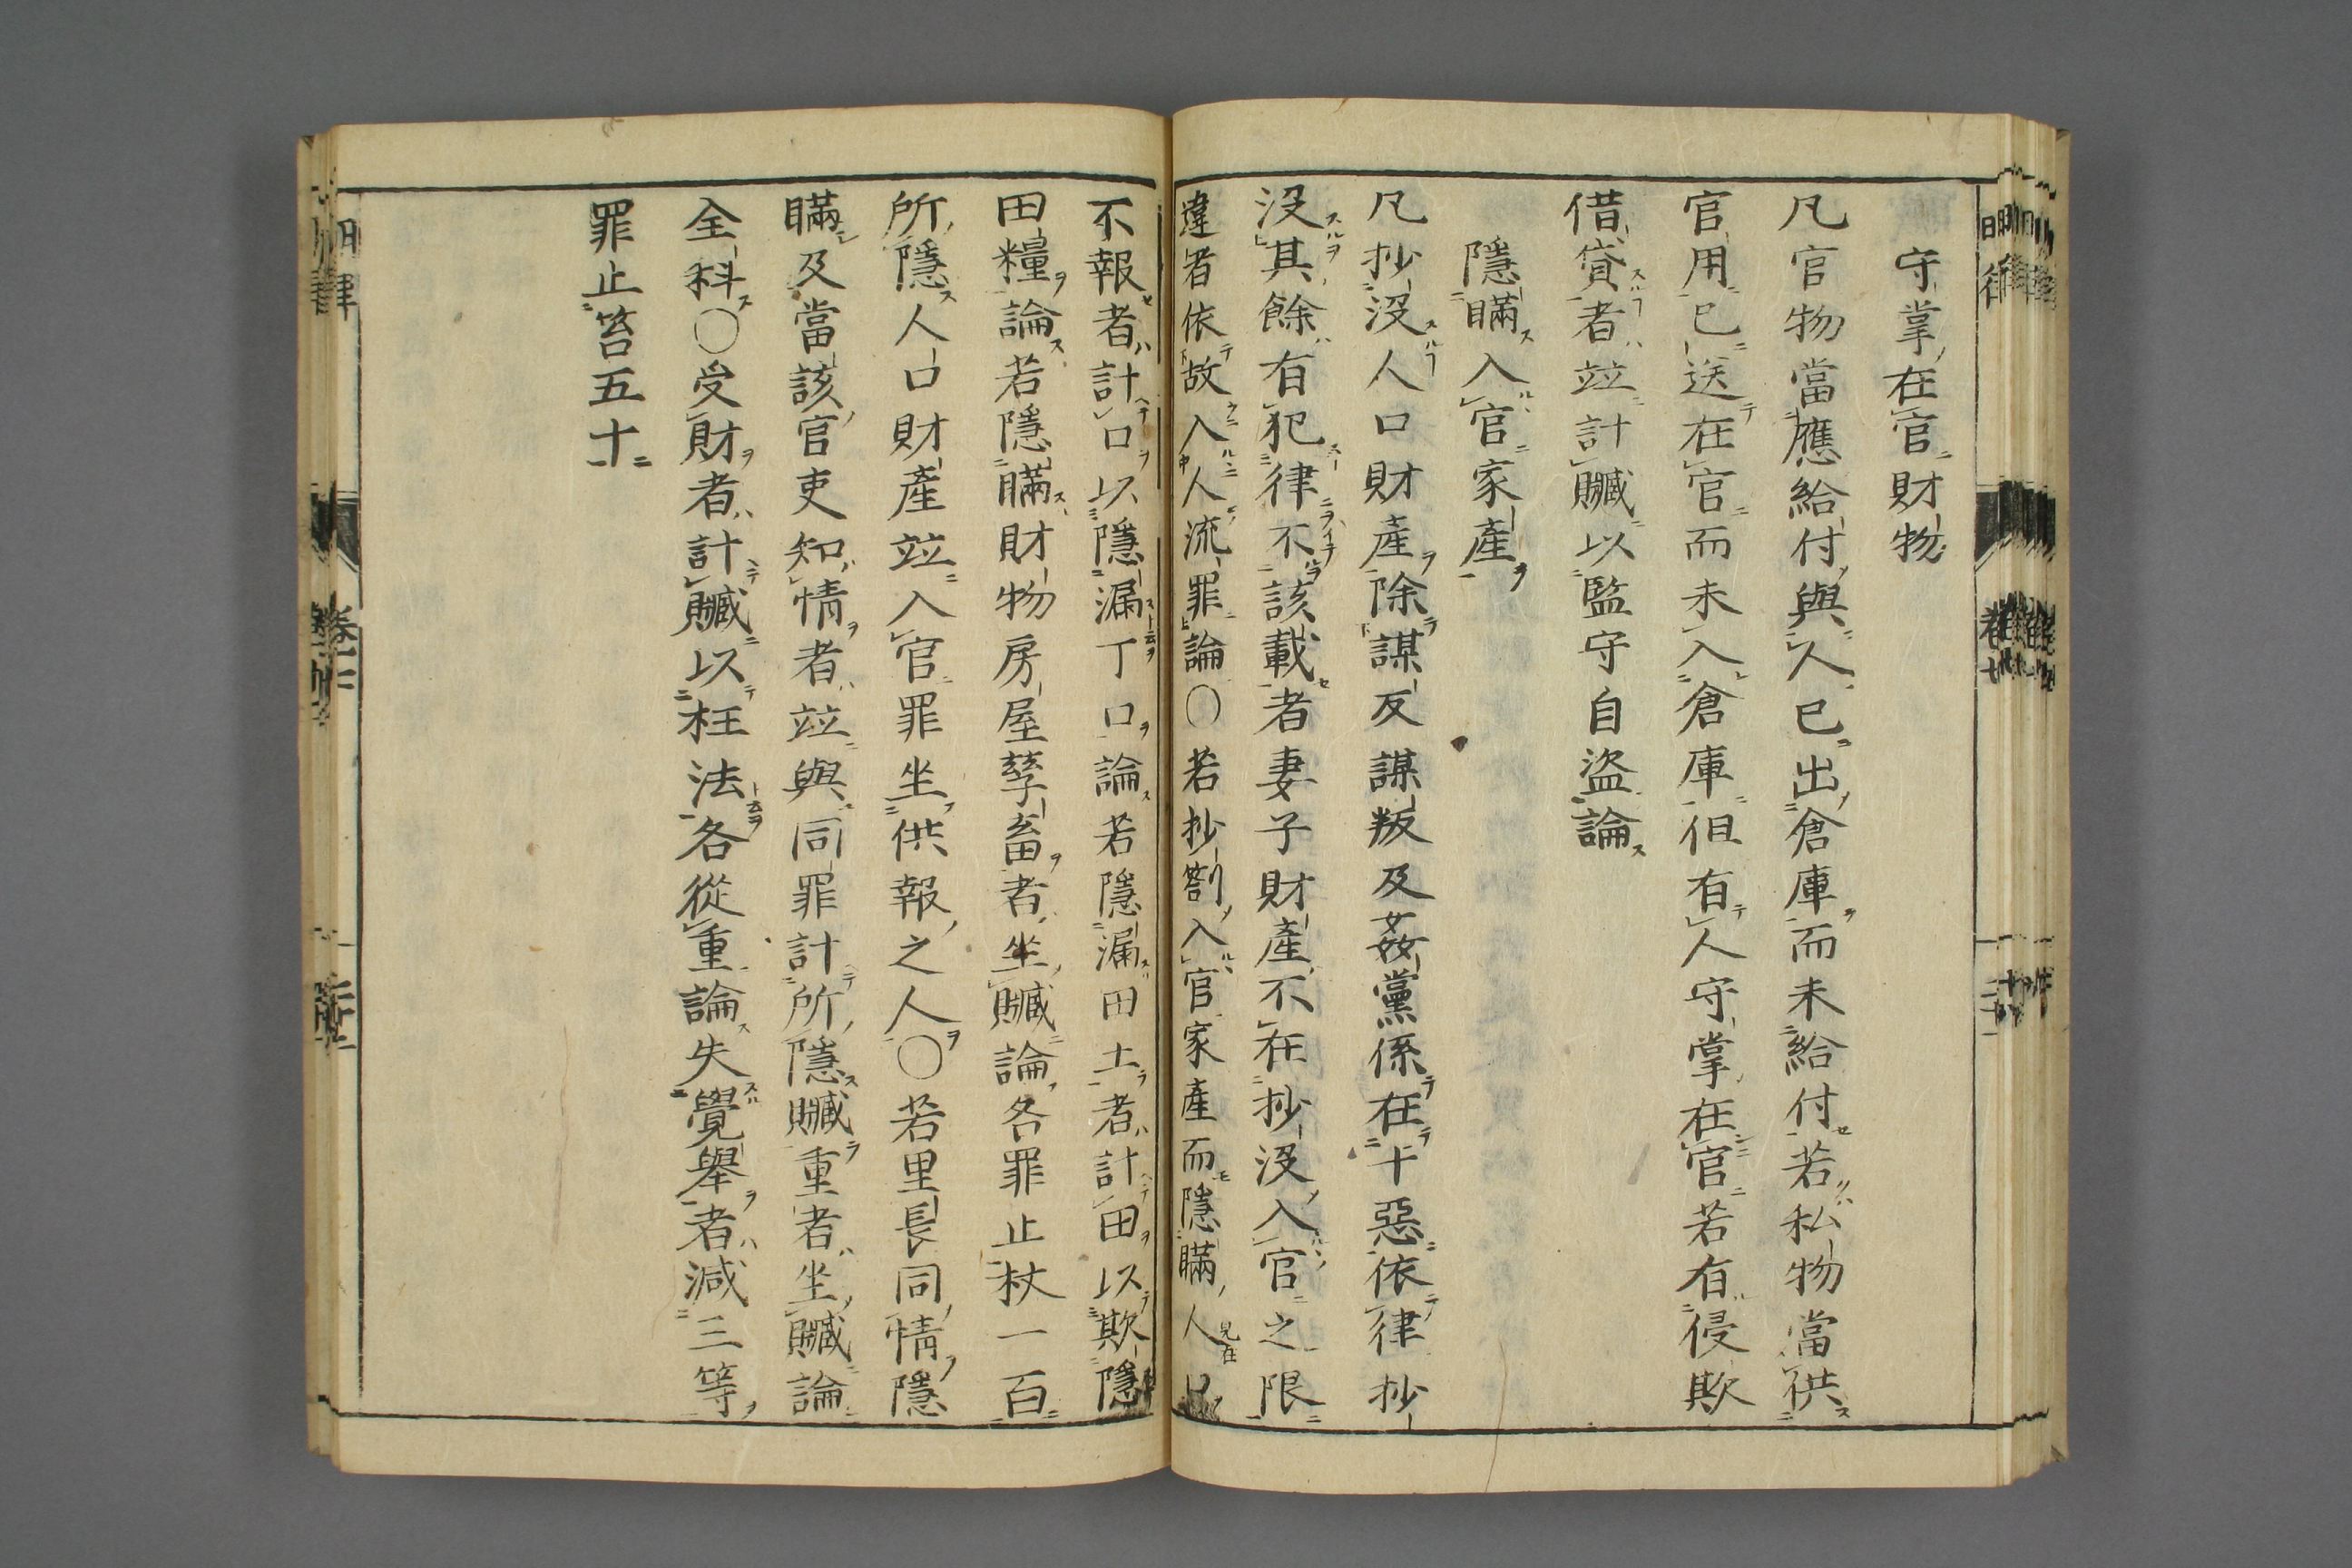 守掌在官財物
凡官物當應給付與人已出倉庫而未給付若私物當供
官用已送在官而未入倉庫但有人守掌在官若有侵欺
借貸者竝計贓以監守自盜論
隱瞞入官家產
凡抄没人口財產除謀反謀叛及姦黨係在十惡依律抄
没其餘有犯律不該載者妻子財產不在抄没入官之限
違者依故入人流罪論○若抄劄入官家產而隱瞞人口
不報者計口以隱漏丁口論若隱漏田土者計田以欺隱
田糧論若隱瞞財物房屋孳畜者坐贓論各罪止杖一百
所隱人口財產竝入官罪坐供報之人○若里長同情隱
瞞及當該官吏知情者竝與同罪計所隱贓重者坐贓論
全科○受財者計贓以枉法各從重論失覺舉者減三等
罪止笞五十